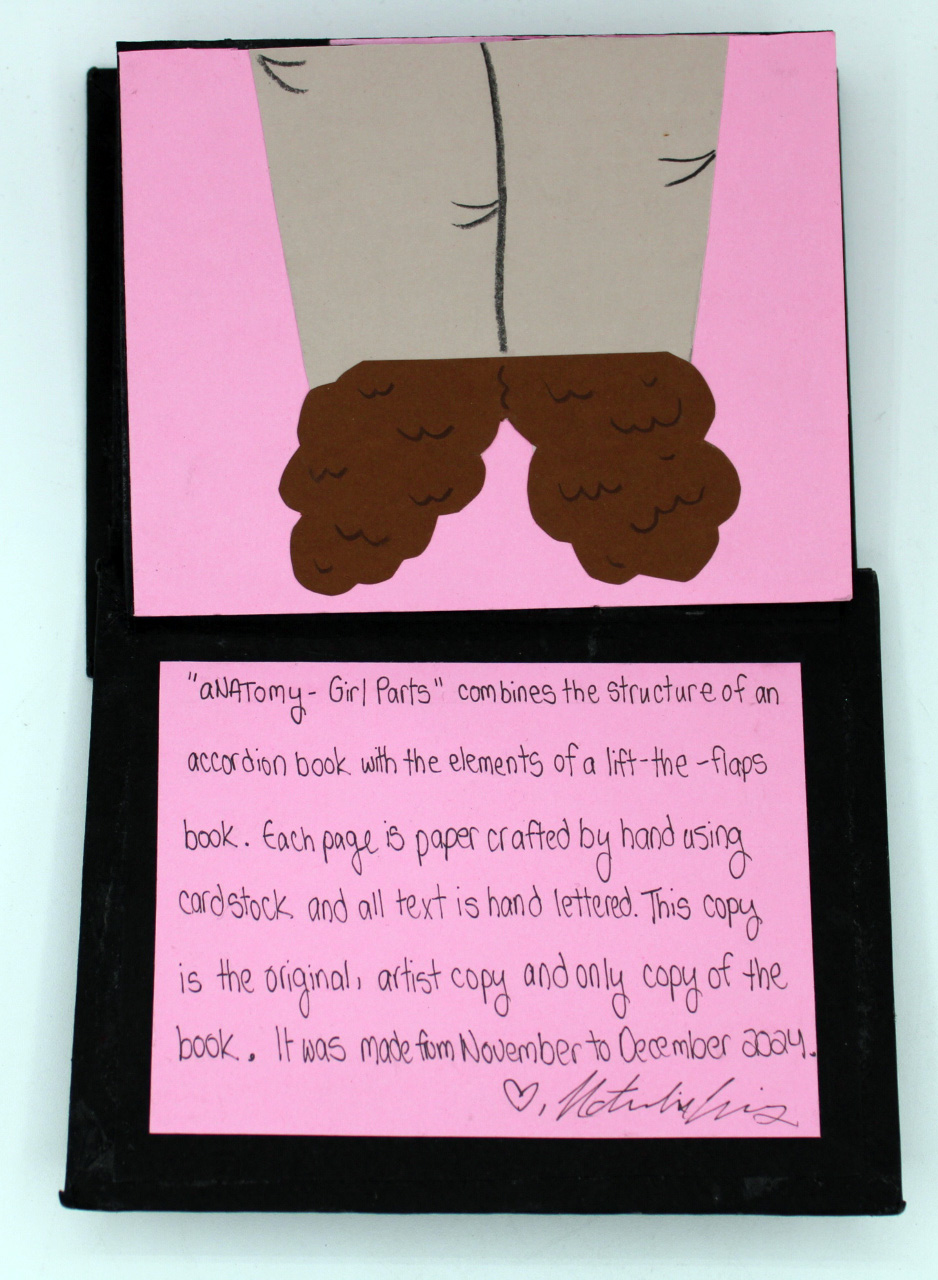 "aNATomy - Girl Parts" combines the structure of an
accordion book with the elements of a lift-the-flaps
book. Each page is paper crafted by hand using
cardstock and all text is hand lettered. This copy
is the original, artist copy and only copy of the
book. It was made from November to December 2024.
♡,